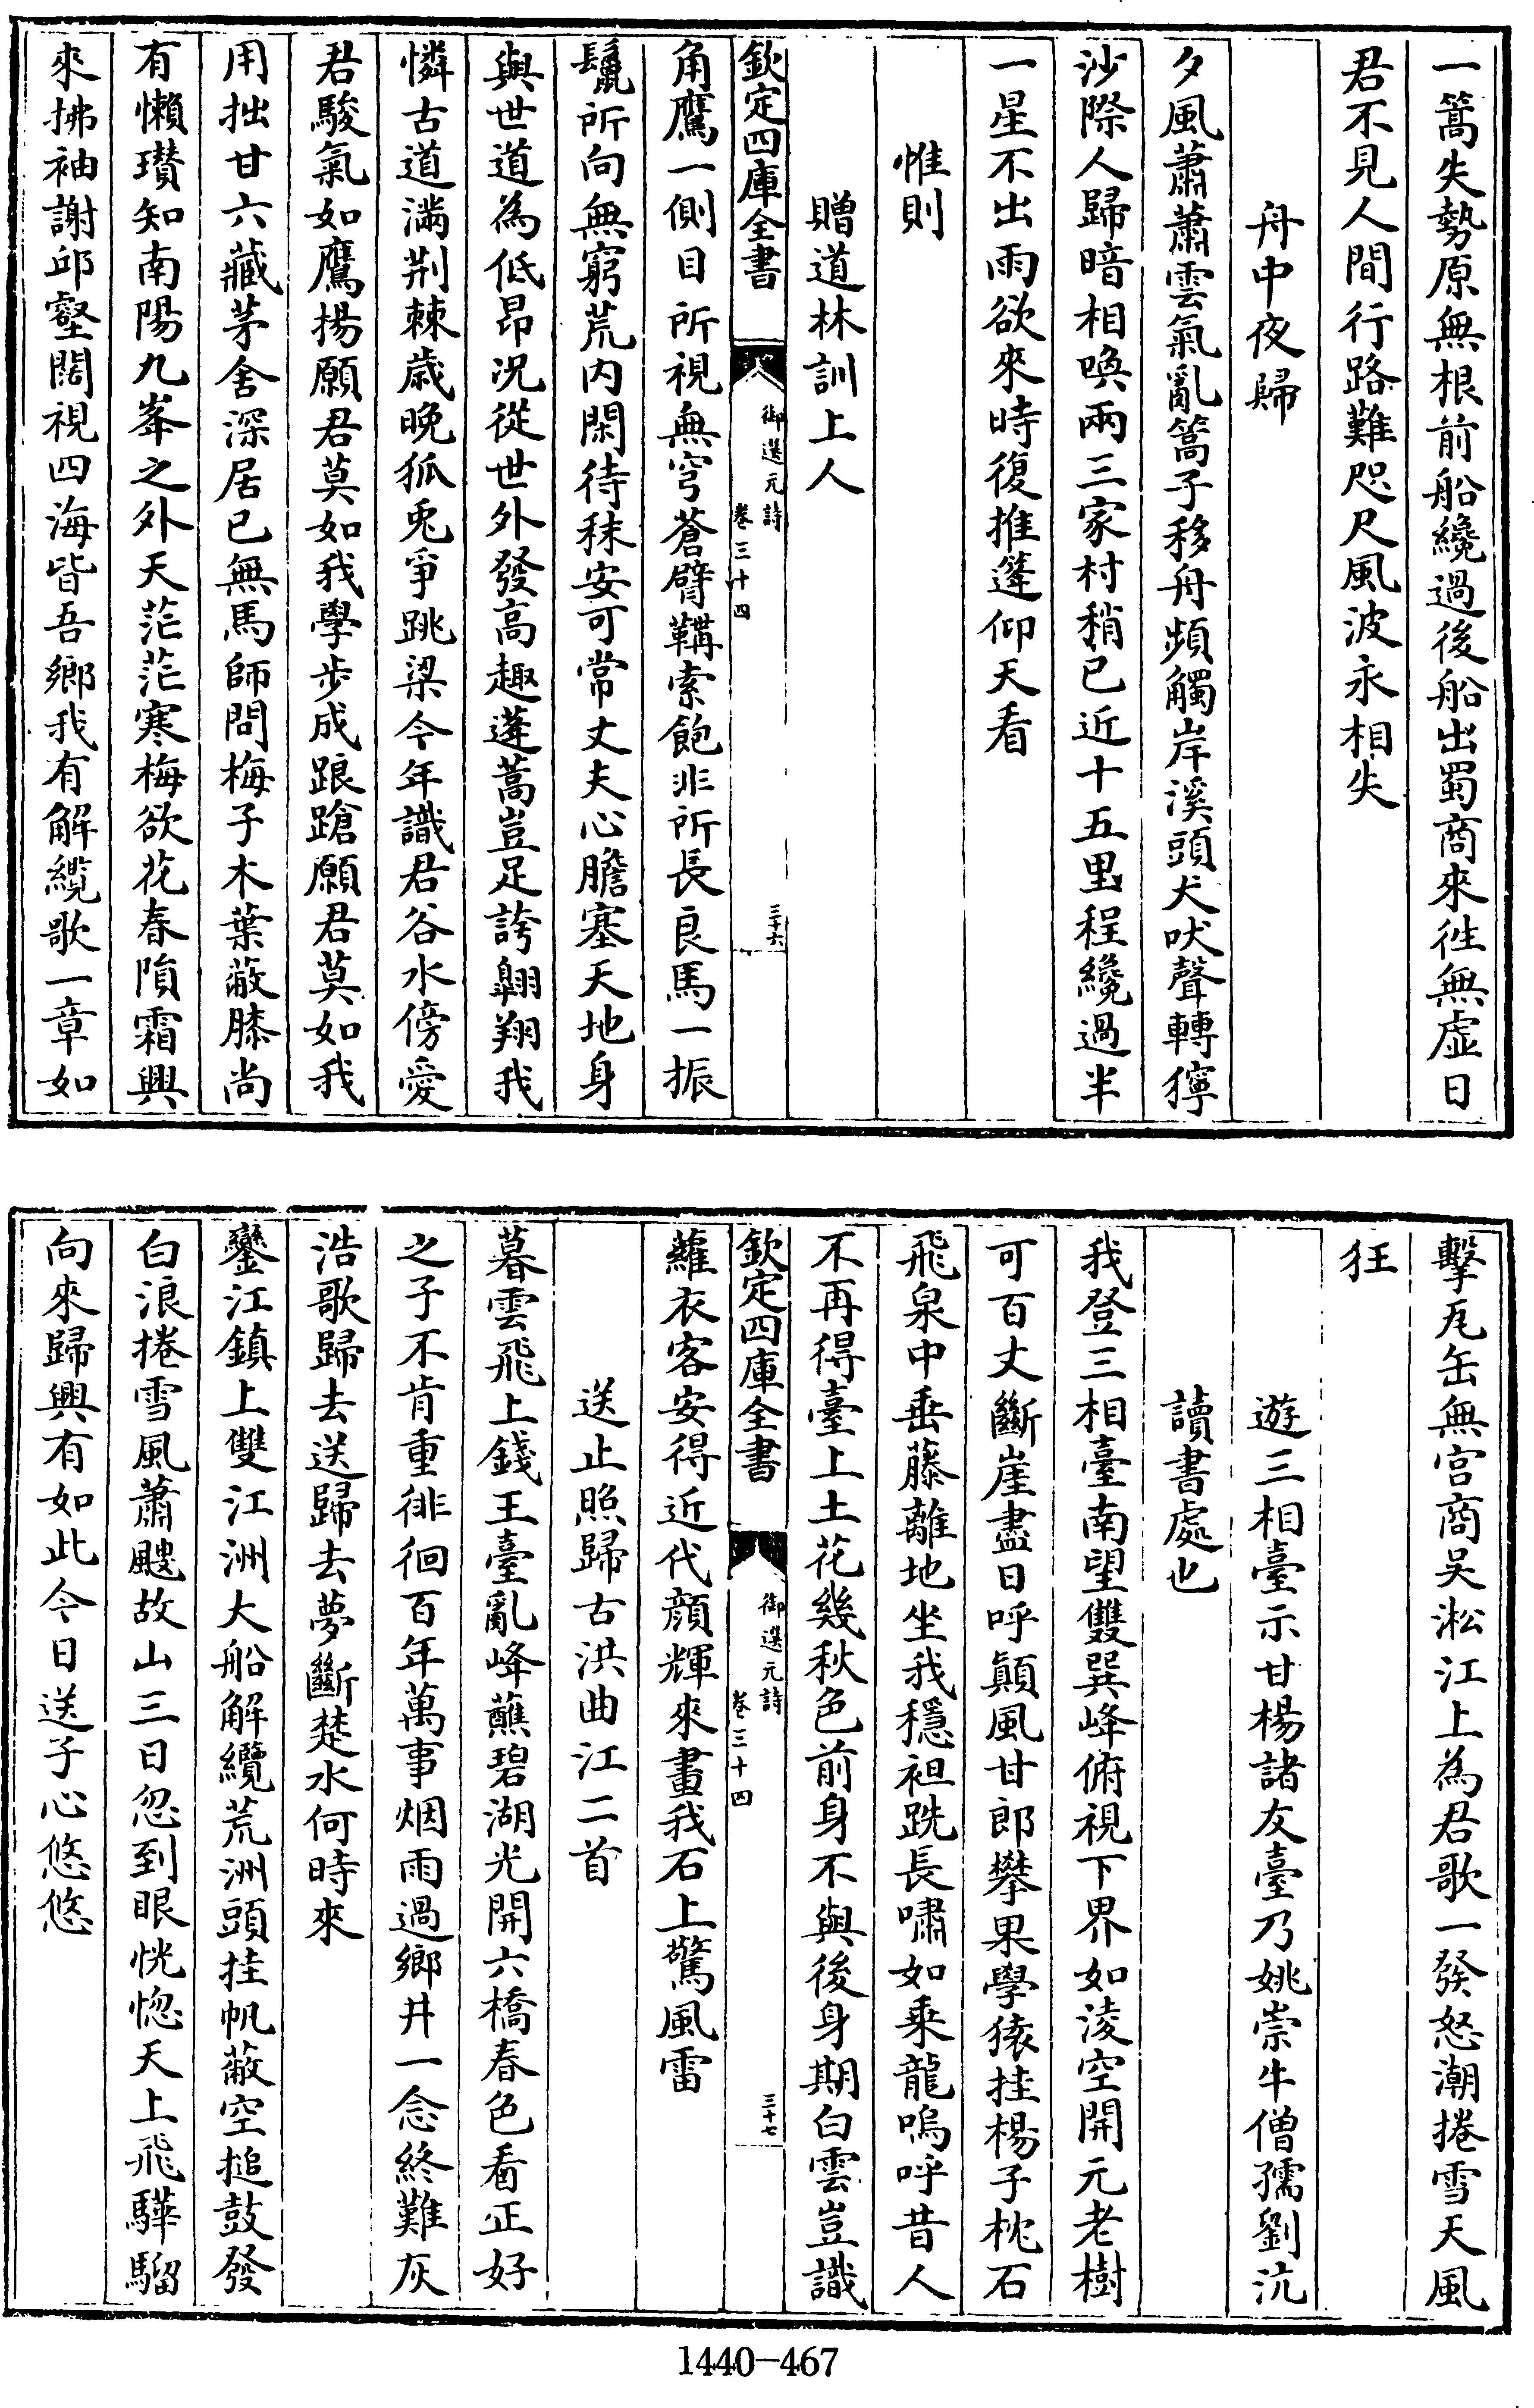 一篙失勢原無根前船纔過後船出蜀商來徃無虛日
君不見人間行路難咫尺風波永相失
舟中夜歸
夕風蕭蕭雲氣亂篙子移舟頻觸岸溪頭犬吠聲轉獰
沙際人歸暗相喚兩三家村稍已近十五里程纔過半
一星不出雨欲來時復推篷仰天看
惟則
贈道林訓上人
欽定四庫全書
御選元詩
卷三十四
三十六
角鷹一側目所視無穹蒼臂鞲索飽非所長良馬一振
鬛所向無窮荒内閑待秣安可常丈夫心膽塞天地身
與世道為低昂況從世外發高趣蓬蒿豈足誇翺翔我
憐古道滿荆棘歲晚狐兎爭跳梁今年識君谷水傍愛
君駿氣如鷹揚願君莫如我學步成踉蹌願君莫如我
用拙甘六藏茅舍深居已無馬師問梅子木葉蔽膝尚
有懶瓚知南陽九峯之外天茫茫寒梅欲花春隕霜興
來拂袖謝邱壑闊視四海皆吾鄉我有解纜歌一章如
擊瓦缶無宫商吳淞江上為君歌一發怒潮捲雪天風
狂
遊三相臺示甘楊諸友臺乃姚崇牛僧孺劉沆
讀書處也
我登三相臺南望雙巽峰俯視下界如淩空開元老樹
可百丈斷崖盡日呼顛風甘郎攀果學猿挂楊子枕石
飛泉中垂藤離地坐我穩袒跣長嘯如乗龍嗚呼昔人
不再得臺上土花幾秋色前身不與後身期白雲豈識
欽定四庫全書
御選元詩
卷三十四
三十七
蘿衣客安得近代顔輝來畫我石上驚風雷
送止照歸古洪曲江二首
暮雲飛上錢王臺亂峰蘸碧湖光開六橋春色看正好
之子不肯重徘徊百年萬事烟雨過鄉井一念終難灰
浩歌歸去送歸去夢斷楚水何時來
鑾江鎮上雙江洲大船解纜荒洲頭挂帆蔽空搥鼓發
白浪捲雪風蕭颼故山三日忽到眼恍惚天上飛驊騮
向來歸興有如此今日送子心悠悠
1440-467